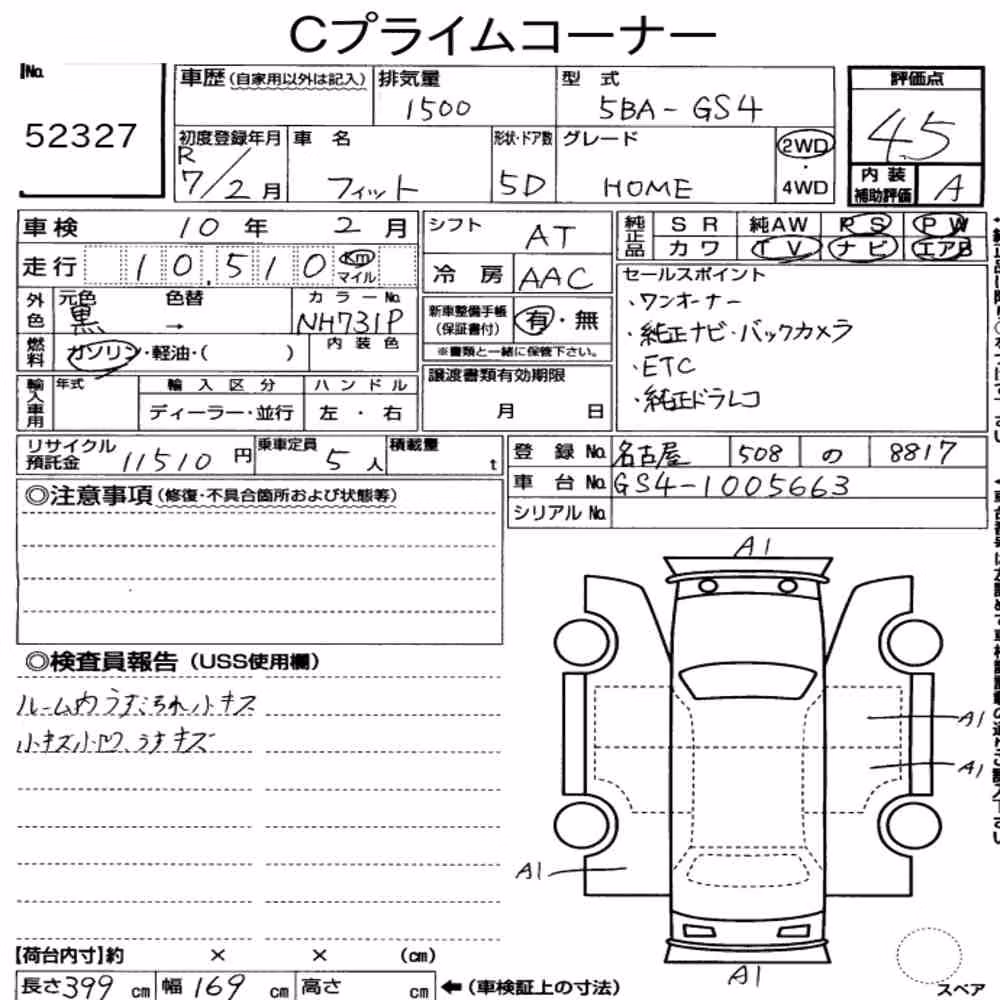 Cプライムコーナー
No.
52327
車歴(自家用以外は記入)
排気量
1500
型 式
5BA-GS4
評価点
4.5
初度登録年月
R
7/2月
車 名
フィット
形状・ドア数
5D
グレード
HOME
2WD
・
4WD
内装補助評価
A
車検 10年 2月
走行 10,510 Km マイル
外色
元色
黒
色替
→
カラーNo.
NH731P
燃料
ガソリン・軽油・( )
内装色
輸入車用
年式
輸入区分
ディーラー・並行
ハンドル
左・右
シフト
AT
冷房
AAC
新車整備手帳
(保証書付)
有・無
※書類と一緒に保管下さい。
譲渡書類有効期限
月 日
純正品
SR 純AW PS PW
カワ TV ナビ エアB
セールスポイント
・ワンオーナー
・純正ナビ・バックカメラ
・ETC
・純正ドラレコ
リサイクル預託金
11510円
乗車定員
5人
積載量
t
登録No. 名古屋 508 の 8817
車台No. GS4-1005663
シリアルNo.
◎注意事項(修復・不具合箇所および状態等)
◎検査員報告(USS使用欄)
ルーム内うすよごれ、小キズ
小キズ小凹、うすキズ
A1
A1
A1
A1
A1
【荷台内寸】約 × × (cm)
長さ399cm 幅169cm 高さ cm ←(車検証上の寸法)
スペア